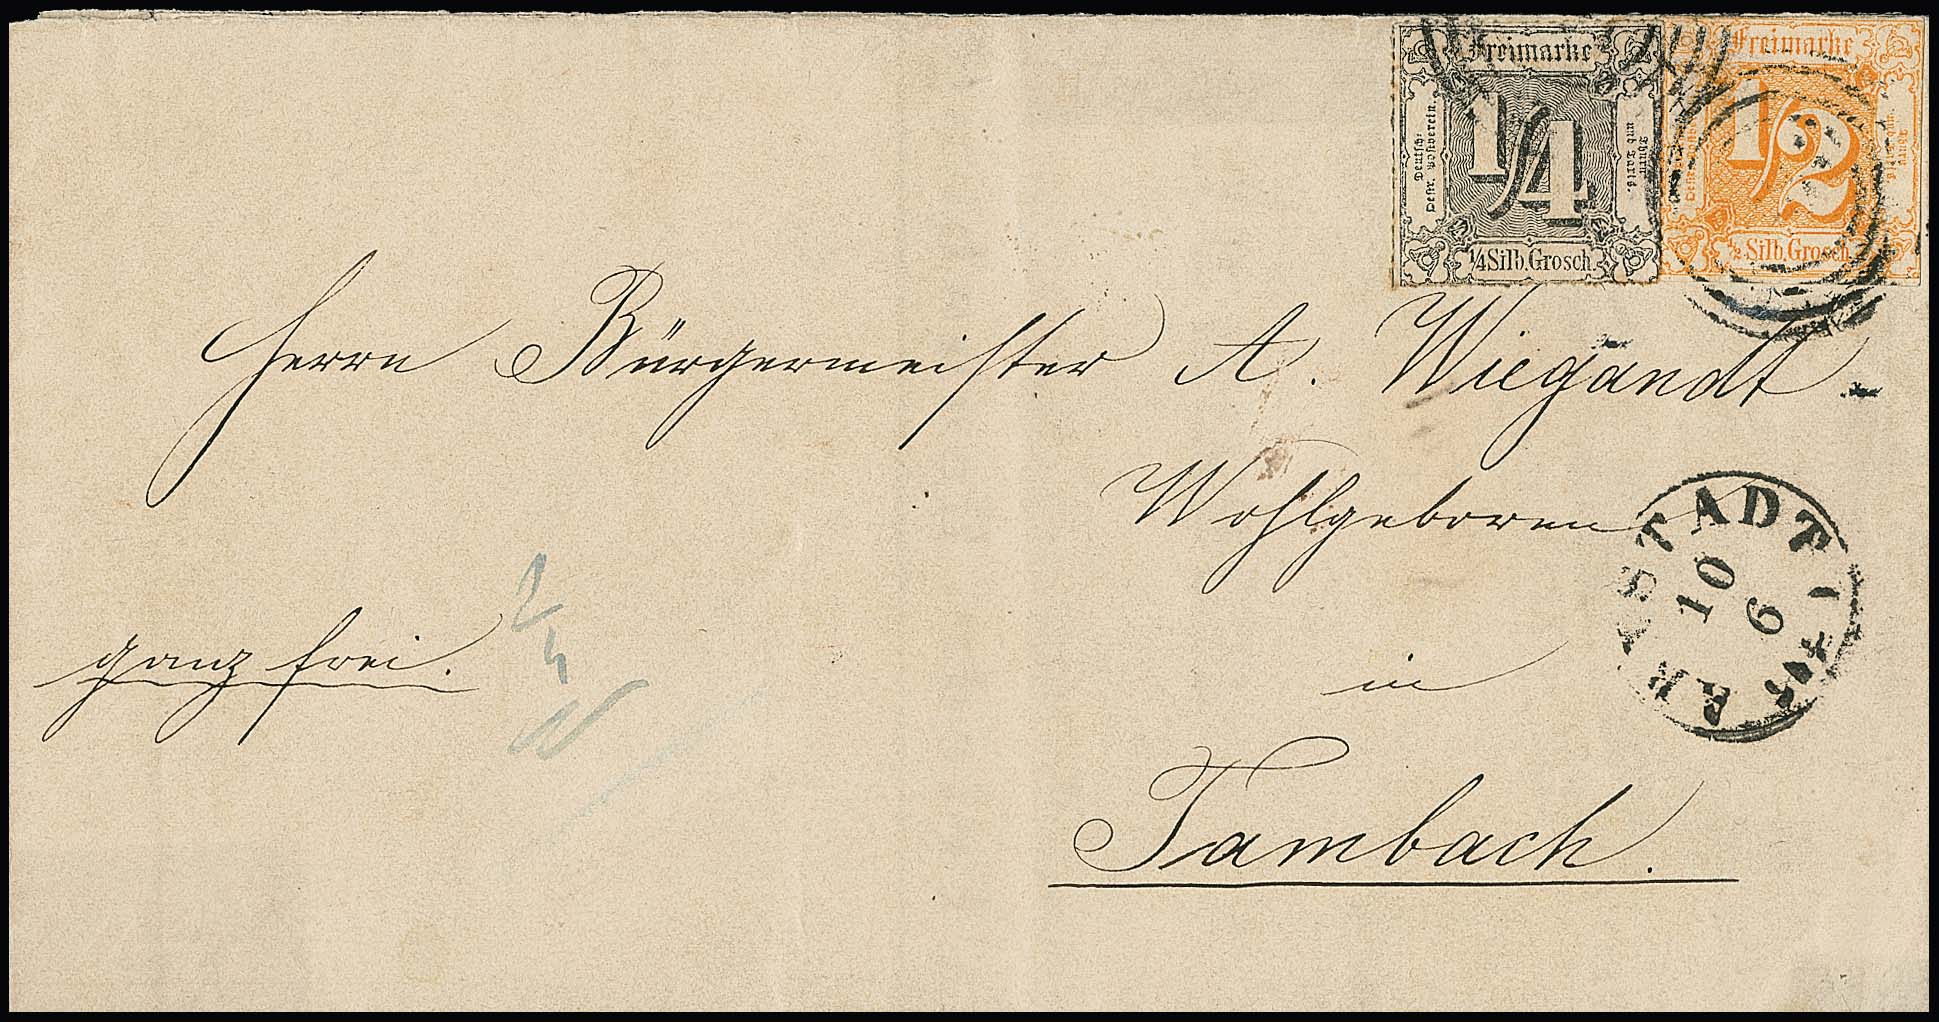 Freimarke
Deutsch-
Oestr. Postverein.
1/4
Thurn
und Taxis.
1/4 Silb. Grosch.
Freimarke
1/2
1/2 Silb. Grosch.
Herrn Bürgermeister A. Wiegandt
Wohlgeboren
ganz frei.
in
Tambach.
ARNSTADT
10
6